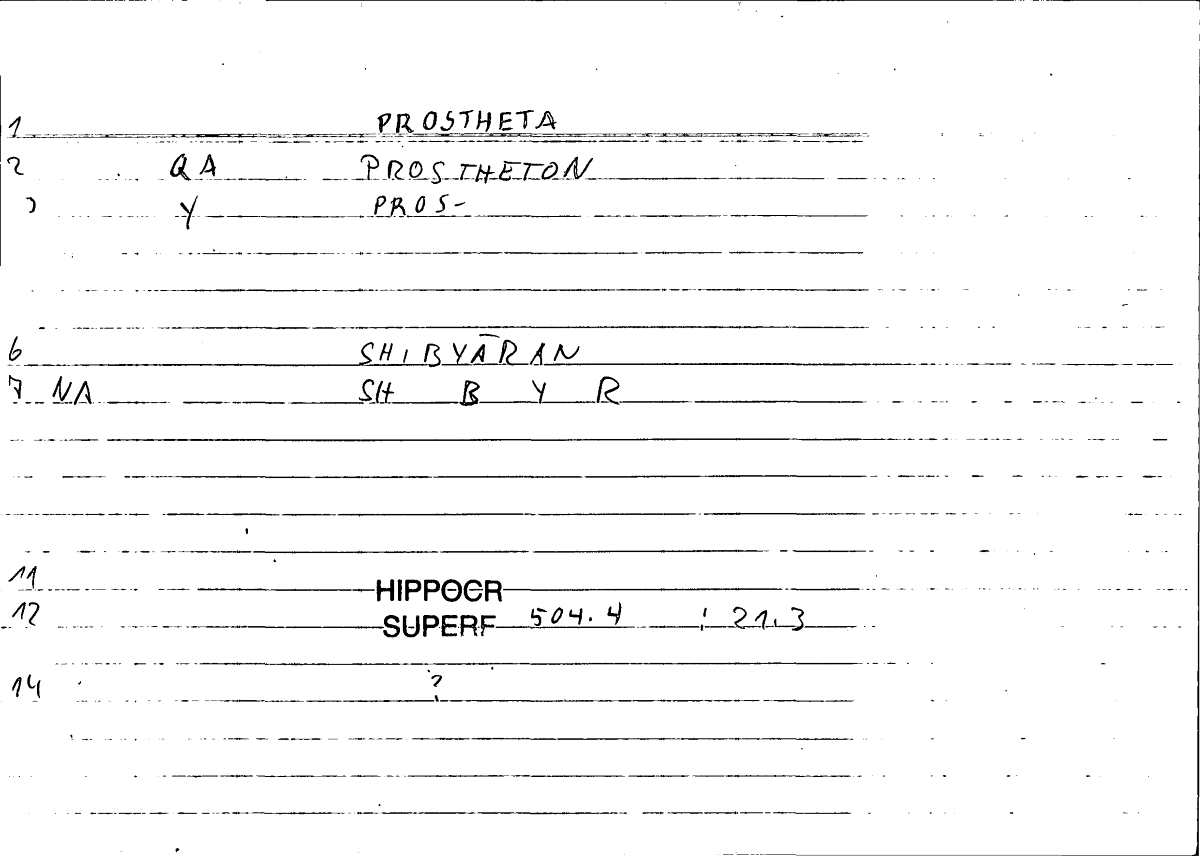 1 PROSTHETA
2 QA PROSTHETON
Y PROS-
6 SHIBYĀRAN
7 NA SH B Y R
11 HIPPOCR
12 SUPERF 504.4 : 21.3
14 ?